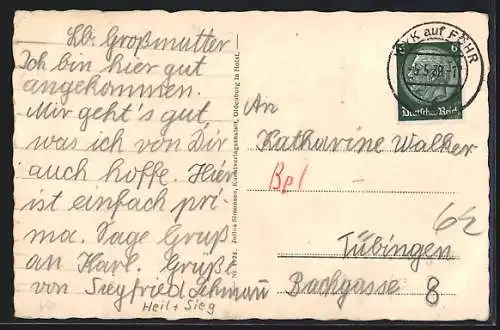 Lb. Großmutter
Ich bin hier gut
angekommen.
Mir geht's gut,
was ich von Dir
auch hoffe. Hier
ist einfach pri-
ma. Sage Gruß
an Karl. Grüße
von Siegfried
Heil + Sieg
Julius Simonsen, Kunstverlagsanstalt, Oldenburg in Holst.
WYK auf FÖHR
6
Deutsches Reich
An
Katharine Walker
Bpl
62
Tübingen
Bachgasse 8